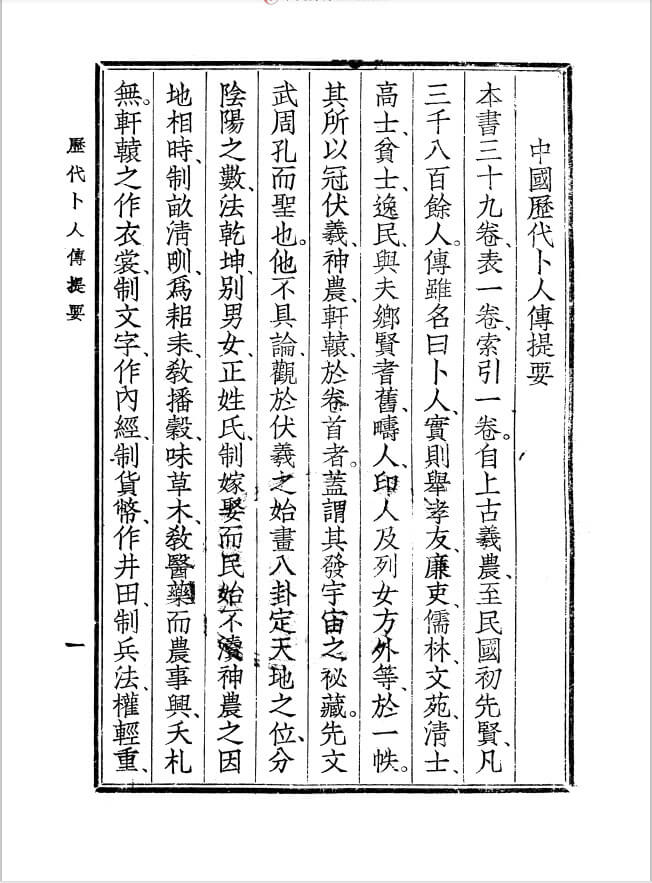 中國歷代卜人傳提要
本書三十九卷、表一卷、索引一卷。自上古羲農、至民國初先賢、凡
三千八百餘人。傳雖名曰卜人、實則舉孝友、廉吏、儒林、文苑、清士、
高士、貧士、逸民、與夫鄉賢耆舊、疇人、印人及列女方外等、於一帙。
其所以冠伏羲、神農、軒轅、於卷首者。蓋謂其發宇宙之祕藏。先文
武周孔而聖也。他不具論、觀於伏羲之始畫八卦、定天地之位、分
陰陽之數、法乾坤、別男女、正姓氏、制嫁娶、而民始不瀆、神農之因
地相時、制畝清甽、爲耜耒、敎播穀、味草木、敎醫藥、而農事興、夭札
無。軒轅之作衣裳、制文字、作內經、制貨幣、作井田、制兵法、權輕重、
歷代卜人傳提要
一